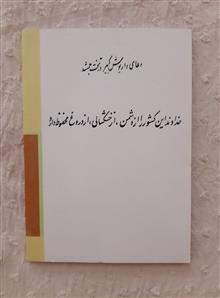 دعای داریوش کبیر در تخت جمشید
خداوند این کشور را از دشمن، از خشکسالی، از دروغ محفوظ دارد